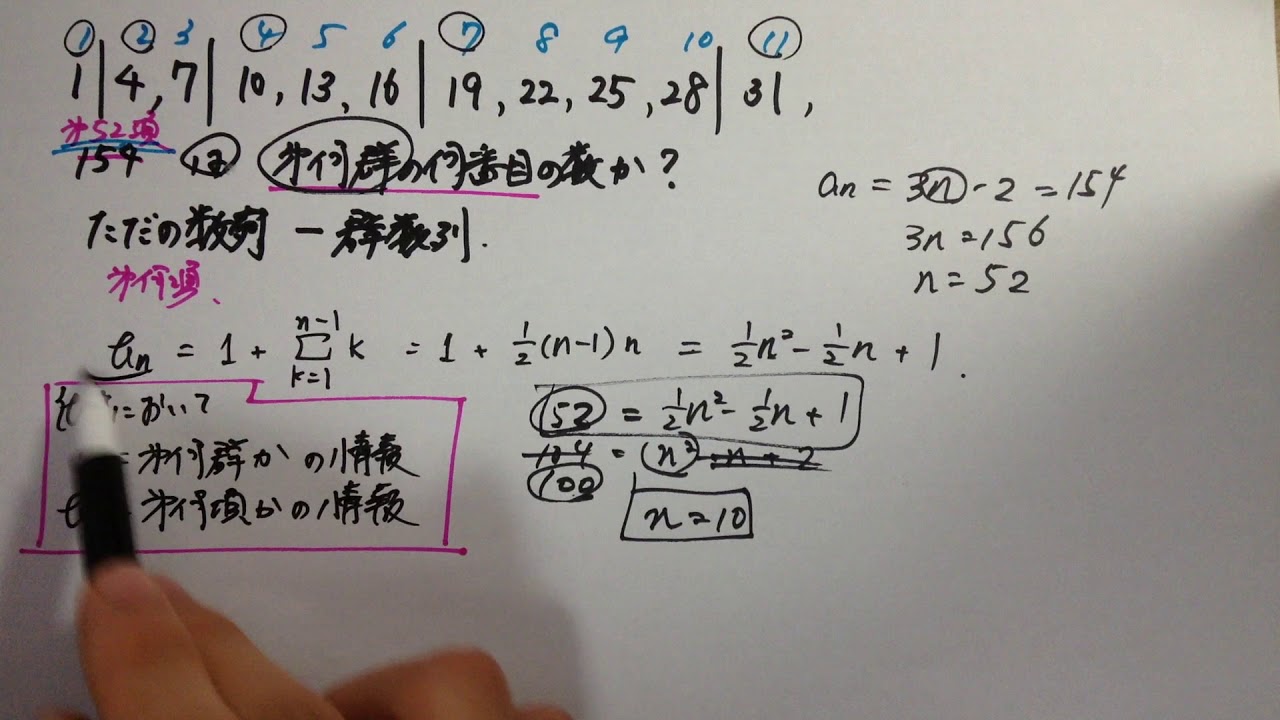 ① ② 3 ④ 5 6 ⑦ 8 9 10 ⑪
1 | 4, 7 | 10, 13, 16 | 19, 22, 25, 28 | 31,
第52項
154 は 第何群の何番目の数か?
ただの数列 ー 群数列.
第何項、
an = 3n - 2 = 154
3n = 156
n = 52
= 1 + Σ k = 1 + 1/2 (n-1) n = 1/2 n² - 1/2 n + 1.
n-1
k=1
において
第何群かの情報
第何項かの情報
52 = 1/2 n² - 1/2 n + 1
104 = n² - n + 2
100
n = 10